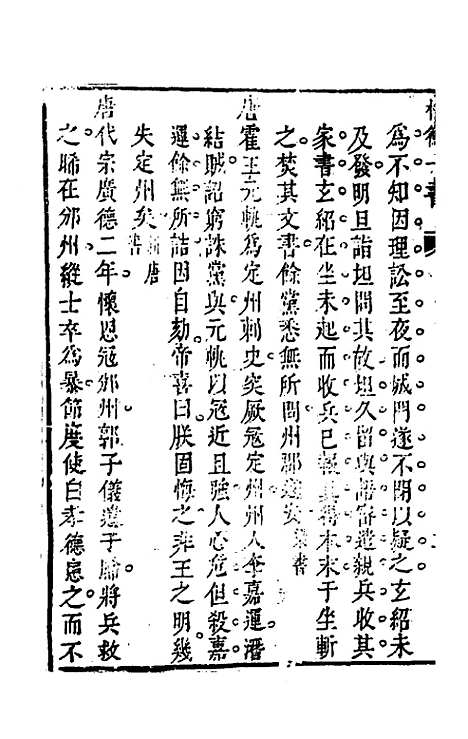 為不知因理訟至夜而城門遂不閉以疑之玄紹未
及發明旦詣坦問其故坦久留與語密遣親兵收其
家書玄紹在坐未起而收兵已報具得本末于坐斬
之焚其文書餘黨悉無所問州郡遂安 梁書
唐霍王元軌為定州刺史突厥寇定州州人李嘉運潛
結賊詔窮誅黨與元軌以寇近且強人心危但殺嘉
運餘無所詰因自劾帝喜曰朕固悔之非王之明幾
失定州矣 唐書
唐代宗廣德二年懷恩寇邠州郭子儀遣子晞將兵救
之晞在邠州縱士卒為暴節度使白孝德患之而不